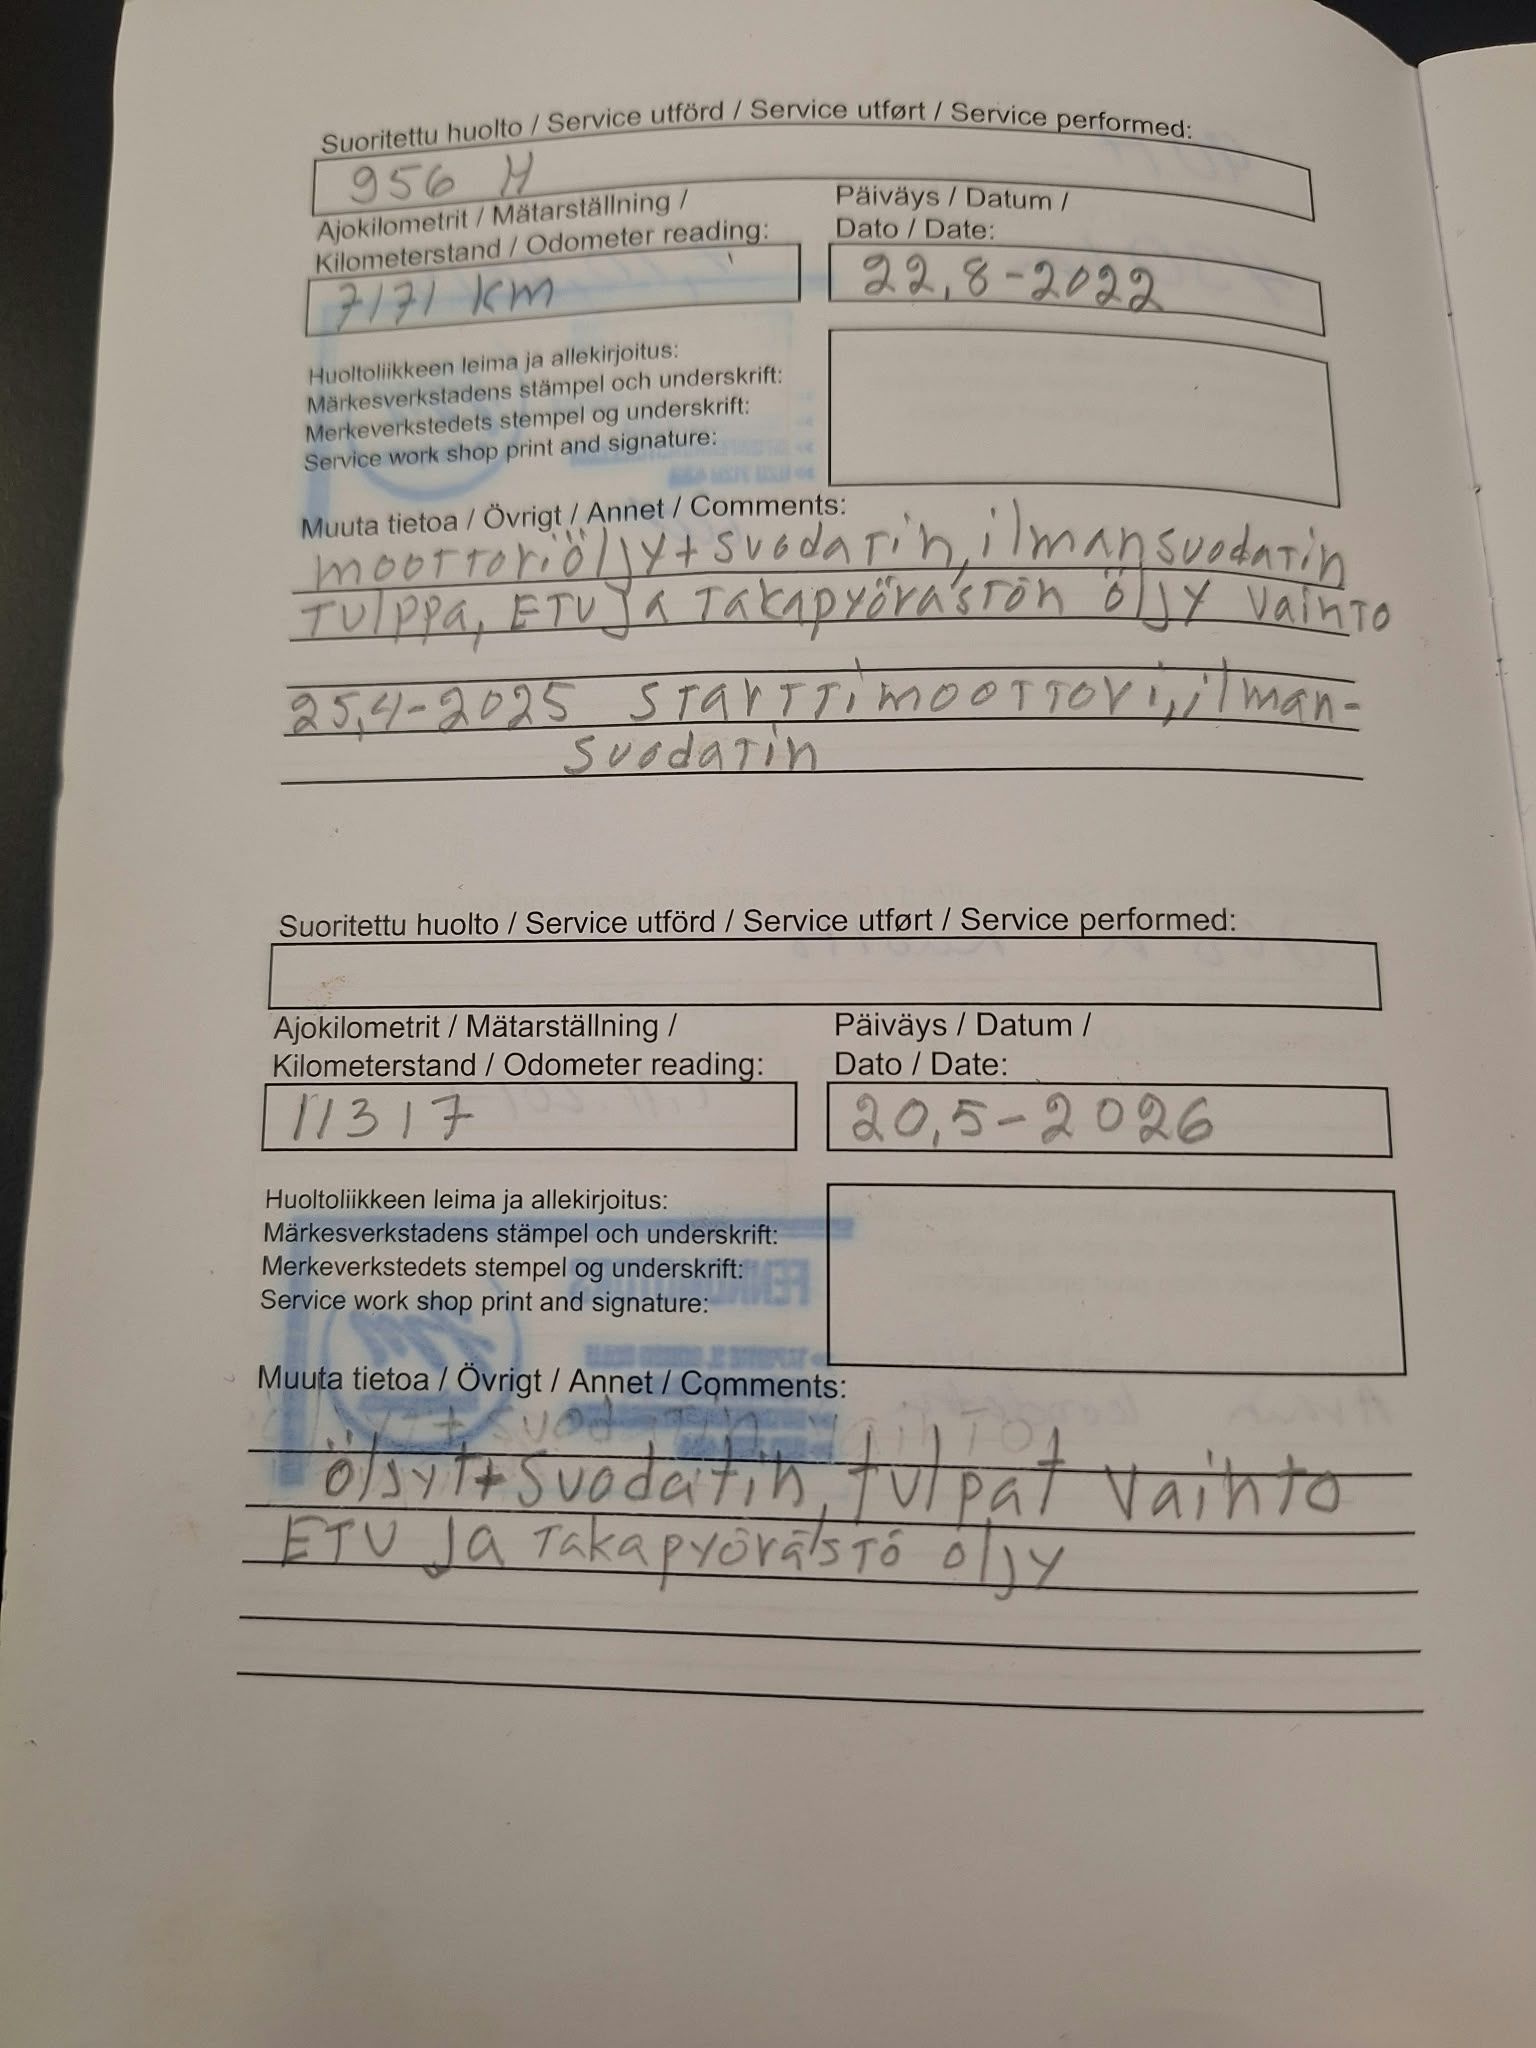 Suoritettu huolto / Service utförd / Service utført / Service performed:
956 H
Ajokilometrit / Mätarställning /
Kilometerstand / Odometer reading:
7171 km
Päiväys / Datum /
Dato / Date:
22,8-2022
Huoltoliikkeen leima ja allekirjoitus:
Märkesverkstadens stämpel och underskrift:
Merkeverkstedets stempel og underskrift:
Service work shop print and signature:
Muuta tietoa / Övrigt / Annet / Comments:
moottoriöljy+suodatin, ilmansuodatin
tulppa, ETU ja takapyörästön öljy vainto
25,4-2025 starttimoottori, ilman-
suodatin
Suoritettu huolto / Service utförd / Service utført / Service performed:
Ajokilometrit / Mätarställning /
Kilometerstand / Odometer reading:
11317
Päiväys / Datum /
Dato / Date:
20,5-2026
Huoltoliikkeen leima ja allekirjoitus:
Märkesverkstadens stämpel och underskrift:
Merkeverkstedets stempel og underskrift:
Service work shop print and signature:
Muuta tietoa / Övrigt / Annet / Comments:
öljyt+suodatin, tulpat vaihto
ETU ja takapyörästö öljy